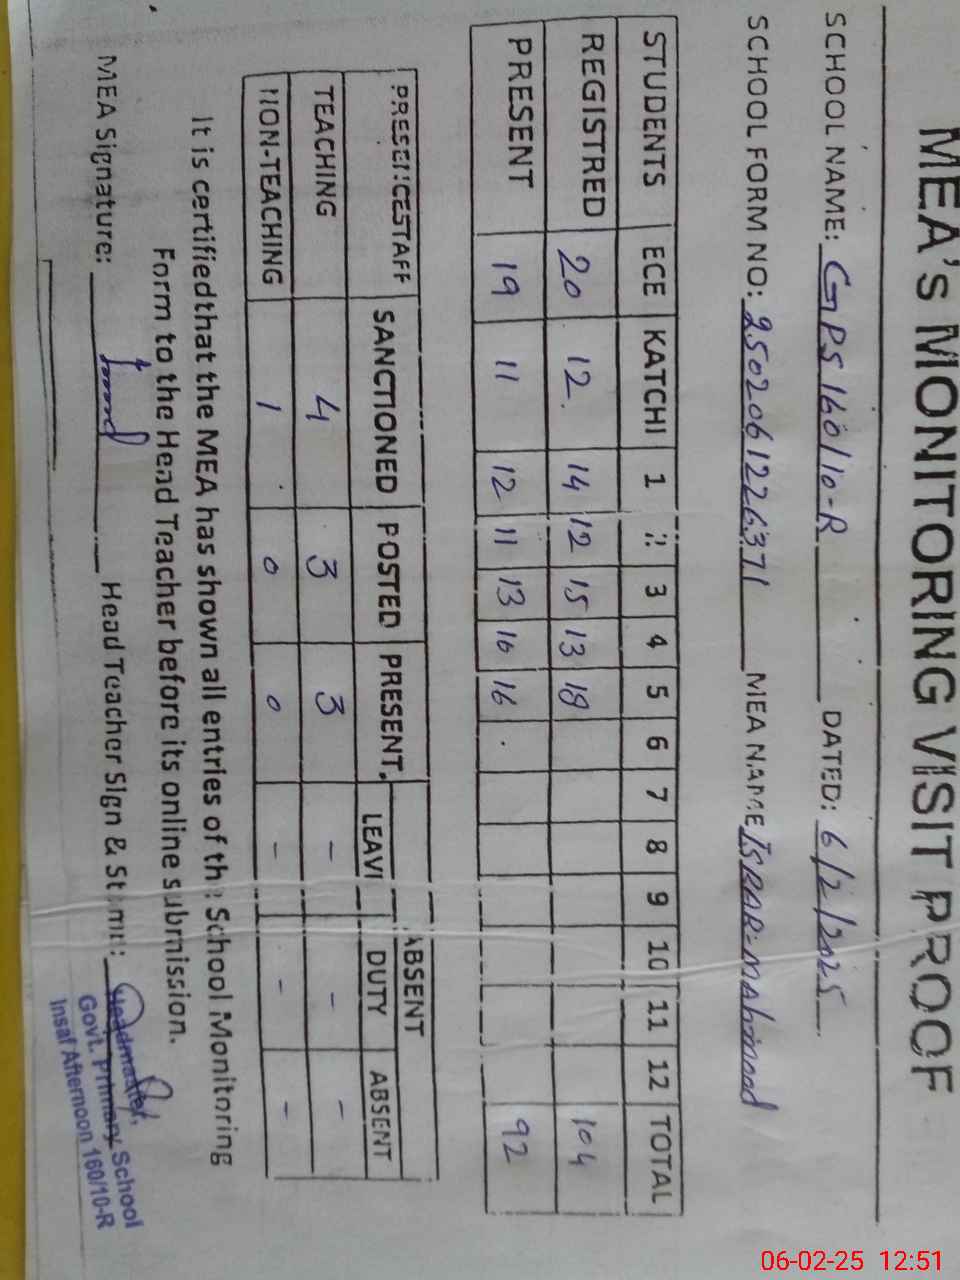 MEA's MONITORING VISIT PROOF
SCHOOL NAME: GPS 160/10-R DATED: 6/2/2025
SCHOOL FORM NO: 2502061226371 MEA NAME ISRAR-MAHMOOD
STUDENTS ECE KATCHI 1 2 3 4 5 6 7 8 9 10 11 12 TOTAL
REGISTRED 20 12 14 12 15 13 18 104
PRESENT 19 11 12 11 13 10 16 92
PRESENCESTAFF SANCTIONED POSTED PRESENT ABSENT
LEAVE DUTY ABSENT
TEACHING 4 3 3 - - -
NON-TEACHING 1 0 0 - - -
It is certifiedthat the MEA has shown all entries of the School Monitoring
Form to the Head Teacher before its online submission.
MEA Signature: Head Teacher Sign & Stamp:
Headmaster,
Govt. Primary School
Insaf Afternoon 160/10-R
06-02-25 12:51